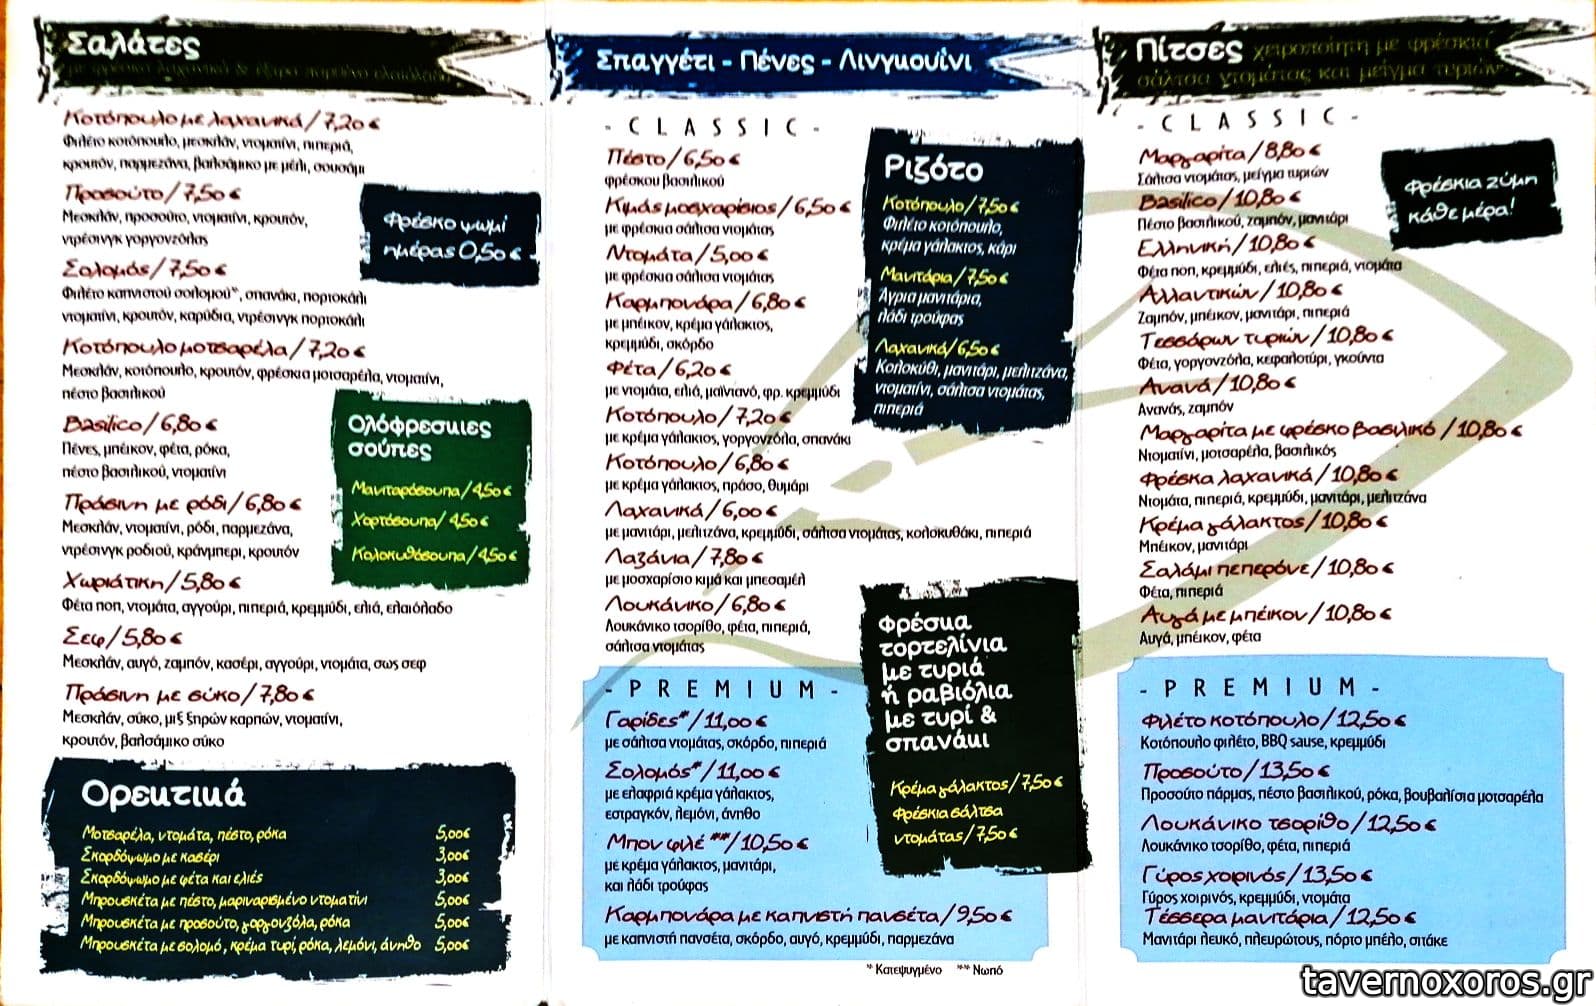 Σαλάτες
με φρέσκα λαχανικά & έξτρα παρθένο ελαιόλαδο
Κοτόπουλο με λαχανικά / 7,20 €
Φιλέτο κοτόπουλο, μεσκλάν, ντοματίνι, πιπεριά,
κρουτόν, παρμεζάνα, βαλσάμικο με μέλι, σουσάμι
Προσούτο / 7,50 €
Μεσκλάν, προσούτο, ντοματίνι, κρουτόν,
ντρέσινγκ γοργονζόλας
Φρέσκο ψωμί
ημέρας 0,50 €
Σολομός / 7,50 €
Φιλέτο καπνιστού σολομού*, σπανάκι, πορτοκάλι
ντοματίνι, κρουτόν, καρύδια, ντρέσινγκ πορτοκάλι
Κοτόπουλο μοτσαρέλα / 7,20 €
Μεσκλάν, κοτόπουλο, κρουτόν, φρέσκια μοτσαρέλα, ντοματίνι,
πέστο βασιλικού
Basilico / 6,80 €
Πένες, μπέικον, φέτα, ρόκα,
πέστο βασιλικού, ντοματίνι
Πράσινη με ρόδι / 6,80 €
Μεσκλάν, ντοματίνι, ρόδι, παρμεζάνα,
ντρέσινγκ ροδιού, κράνμπερι, κρουτόν
Χωριάτικη / 5,80 €
Φέτα ποπ, ντομάτα, αγγούρι, πιπεριά, κρεμμύδι, ελιά, ελαιόλαδο
Σεφ / 5,80 €
Μεσκλάν, αυγό, ζαμπόν, κασέρι, αγγούρι, ντομάτα, σως σεφ
Πράσινη με σύκο / 7,80 €
Μεσκλάν, σύκο, μιξ ξηρών καρπών, ντοματίνι,
κρουτόν, βαλσάμικο σύκο
Ολόφρεσκιες
σούπες
Μανιταρόσουπα / 4,50 €
Χορτόσουπα / 4,50 €
Κολοκυθόσουπα / 4,50 €
Ορεκτικά
Μοτσαρέλα, ντομάτα, πέστο, ρόκα 5,00€
Σκορδόψωμο με κασέρι 3,00€
Σκορδόψωμο με φέτα και ελιές 3,00€
Μπρουσκέτα με πέστο, μαριναρισμένο ντοματίνι 5,00€
Μπρουσκέτα με προσούτο, γοργονζόλα, ρόκα 5,00€
Μπρουσκέτα με σολομό, κρέμα τυρί, ρόκα, λεμόνι, άνηθο 5,00€
Σπαγγέτι - Πένες - Λινγκουίνι
- CLASSIC -
Πέστο / 6,50 €
φρέσκου βασιλικού
Κιμάς μοσχαρίσιος / 6,50 €
με φρέσκια σάλτσα ντομάτας
Ντομάτα / 5,00 €
με φρέσκια σάλτσα ντομάτας
Καρμπονάρα / 6,80 €
με μπέικον, κρέμα γάλακτος,
κρεμμύδι, σκόρδο
Φέτα / 6,20 €
με ντομάτα, ελιά, μαϊντανό, φρ. κρεμμύδι
Κοτόπουλο / 7,20 €
με κρέμα γάλακτος, γοργονζόλα, σπανάκι
Κοτόπουλο / 6,80 €
με κρέμα γάλακτος, πράσο, θυμάρι
Λαχανικά / 6,00 €
με μανιτάρι, μελιτζάνα, κρεμμύδι, σάλτσα ντομάτας, κολοκυθάκι, πιπεριά
Λαζάνια / 7,80 €
με μοσχαρίσιο κιμά και μπεσαμέλ
Λουκάνικο / 6,80 €
Λουκάνικο τσορίθο, φέτα, πιπεριά,
σάλτσα ντομάτας
- PREMIUM -
Γαρίδες* / 11,00 €
με σάλτσα ντομάτας, σκόρδο, πιπεριά
Σολομός* / 11,00 €
με ελαφριά κρέμα γάλακτος,
εστραγκόν, λεμόνι, άνηθο
Μπον φιλέ ** / 10,50 €
με κρέμα γάλακτος, μανιτάρι,
και λάδι τρούφας
Καρμπονάρα με καπνιστή πανσέτα / 9,50 €
με καπνιστή πανσέτα, σκόρδο, αυγό, κρεμμύδι, παρμεζάνα
* Κατεψυγμένο ** Νωπό
Ριζότο
Κοτόπουλο / 7,50 €
Φιλέτο κοτόπουλο,
κρέμα γάλακτος, κάρι
Μανιτάρια / 7,50 €
Άγρια μανιτάρια,
λάδι τρούφας
Λαχανικά / 6,50 €
Κολοκύθι, μανιτάρι, μελιτζάνα,
ντοματίνι, σάλτσα ντομάτας,
πιπεριά
Φρέσκα
τορτελίνια
με τυριά
ή ραβιόλια
με τυρί &
σπανάκι
Κρέμα γάλακτος / 7,50 €
Φρέσκια σάλτσα
ντομάτας / 7,50 €
Πίτσες χειροποίητη με φρέσκια
σάλτσα ντομάτας και μείγμα τυριών
- CLASSIC -
Μαργαρίτα / 8,80 €
Σάλτσα ντομάτας, μείγμα τυριών
Basilico / 10,80 €
Πέστο βασιλικού, ζαμπόν, μανιτάρι
Ελληνική / 10,80 €
Φέτα ποπ, κρεμμύδι, ελιές, πιπεριά, ντομάτα
Αλλαντικών / 10,80 €
Ζαμπόν, μπέικον, μανιτάρι, πιπεριά
Τεσσάρων τυριών / 10,80 €
Φέτα, γοργονζόλα, κεφαλοτύρι, γκούντα
Ανανά / 10,80 €
Ανανάς, ζαμπόν
Μαργαρίτα με φρέσκο βασιλικό / 10,80 €
Ντοματίνι, μοτσαρέλα, βασιλικός
Φρέσκα λαχανικά / 10,80 €
Ντομάτα, πιπεριά, κρεμμύδι, μανιτάρι, μελιτζάνα
Κρέμα γάλακτος / 10,80 €
Μπέικον, μανιτάρι
Σαλάμι πεπερόνε / 10,80 €
Φέτα, πιπεριά
Αυγά με μπέικον / 10,80 €
Αυγά, μπέικον, φέτα
Φρέσκια ζύμη
κάθε μέρα!
- PREMIUM -
Φιλέτο κοτόπουλο / 12,50 €
Κοτόπουλο φιλέτο, BBQ sause, κρεμμύδι
Προσούτο / 13,50 €
Προσούτο πάρμας, πέστο βασιλικού, ρόκα, βουβαλίσια μοτσαρέλα
Λουκάνικο τσορίθο / 12,50 €
Λουκάνικο τσορίθο, φέτα, πιπεριά
Γύρος χοιρινός / 13,50 €
Γύρος χοιρινός, κρεμμύδι, ντομάτα
Τέσσερα μανιτάρια / 12,50 €
Μανιτάρι λευκό, πλευρώτους, πόρτο μπέλο, σιτάκε
tavernoxoros.gr